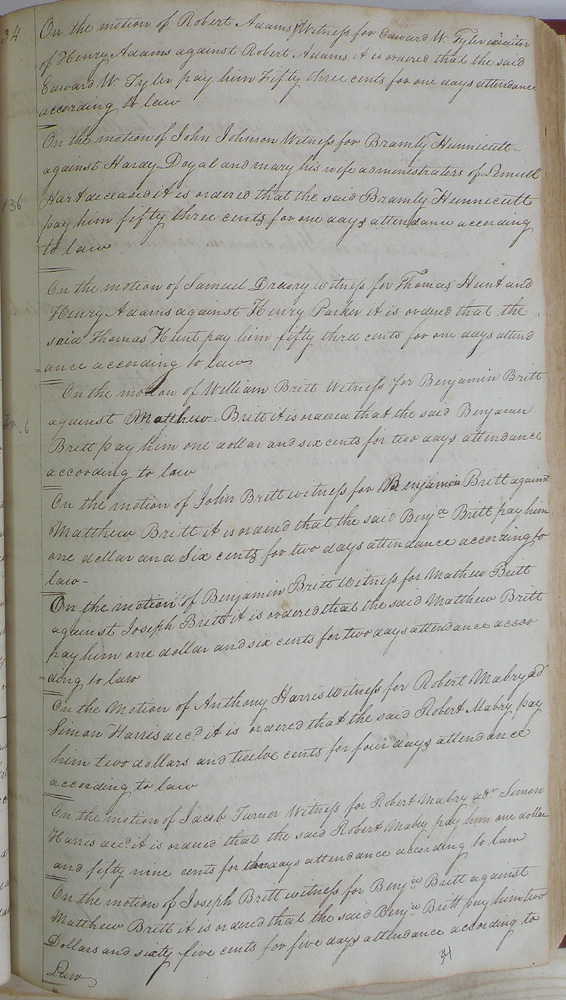 34
On the motion of Robert Adams Witness for Edward W. Tyler
of Henry Adams against Robert Adams it is ordered that the said
Edward W. Tyler pay him Fifty three cents for one days attendance
according to law
On the motion of John Johnson Witness for Bramly Hunnicutt
against Hardy Doyal and mary his wife administraters of Lemuel
136
Hart deceased it is ordered that the said Bramly Hunnicutt
pay him fifty three cents for one days attendance according
to law
On the motion of Samuel Drewry witness for Thomas Hunt and
Henry Adams against Henry Parker it is ordered that the
said Thomas Hunt pay him fifty three cents for one days attend
ance according to law
On the motion of William Britt Witness for Benjamin Britt
against Matthew Britt it is ordered that the said Benjamin
Britt pay him one dollar and six cents for two days attendance
according to law
On the motion of John Britt witness for Benjamin Britt against
Matthew Britt it is ordered that the said Benja Britt pay him
one dollar and Six cents for two days attendance according to
law-
On the motion of Benjamin Britt Witness for Mathew Britt
against Joseph Britt it is ordered that the said Matthew Britt
pay him one dollar and six cents for two days attendance accor
ding to law
On the Motion of Anthony Harris Witness for Robert Mabry ad
Simon Harris decd it is ordered that the said Robert Mabry pay
him two dollars and twelve cents for four days attendance
according to law
On the motion of Jacob Turner Witness for Robert Mabry adr Simon
Harris decd it is ordered that the said Robert Mabry pay him one dollar
and fifty nine cents for three days attendance according to law
On the motion of Joseph Britt witness for Benja Britt against
Matthew Britt it is ordered that the said Benja Britt pay him two
Dollars and sixty five cents for five days attendance according to
Law
34